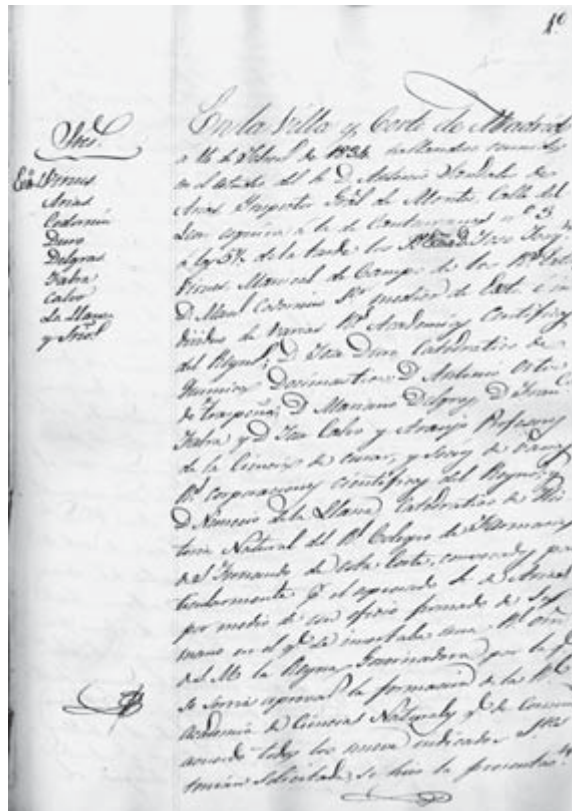 1º
Sres.
Exmo. Virues
Arias
Codorniu
Duro
Delgras
Fabra
Calvo
La Llana
y Sriol
En la Villa y Corte de Madrid
a 16 de Febrero de 1834 hallandose reunidos
en el estudio del Sr. D. Antonio Sandalio de
Arias Inspector Gral de Montes, Calle del
Leon esquina á la de Cantarranas nº 3
a las 5½ de la tarde los Sres. Exmo. D. Jose Joaqn. de
Virues Mariscal de Campo de los Rs. Extos.
D. Manl Codorniu
dividuo de varias Rs. Academias Cientificas
del Reyno; D. Jose Duro Catedratico de
Quimica Docimastica; D. Antonio Ortiz
de D. Mariano Delgras D. Franco.
Fabra y D. Jose Calvo y Araujo Profesores
de la Ciencia de curar, y Socios de varias
Rs. Corporaciones cientificas del Reyno; y
D. Nemesio de la Llana Catedratico de His
toria Natural del Rl. Colegio de Farmacia
de S. Fernando de esta Corte, convocados par
ticularmente pr. el expresado Sr. de Arias
por medio de un oficio firmado de su
mano en el qe. se insertaba una Rl. orn
de S M la Reyna Governadora por la qe.
se servia aprovar la formacion de la Rl.
academia de Ciencias Naturales qe. de Comun
acuerdo todos los nueve indicados Sres
tenian solicitada; se hizo la presentacn.